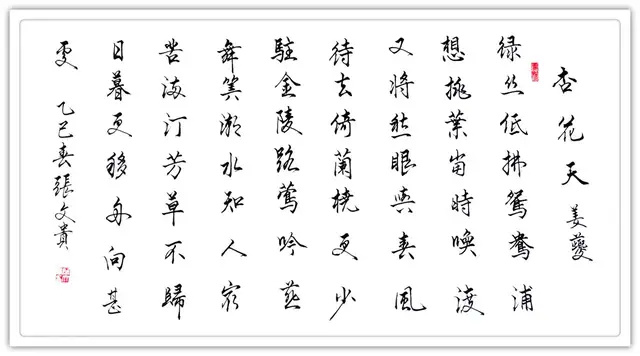 杏花天 姜夔
緑丝低拂鴛鴦浦
想桃葉當時喚渡
又將愁眼與春風
待去倚蘭橈更少
駐金陵路鶯吟燕
舞算潮水知人最
苦滿汀芳草不歸
日暮更移舟向甚
处 乙巳春張文貴